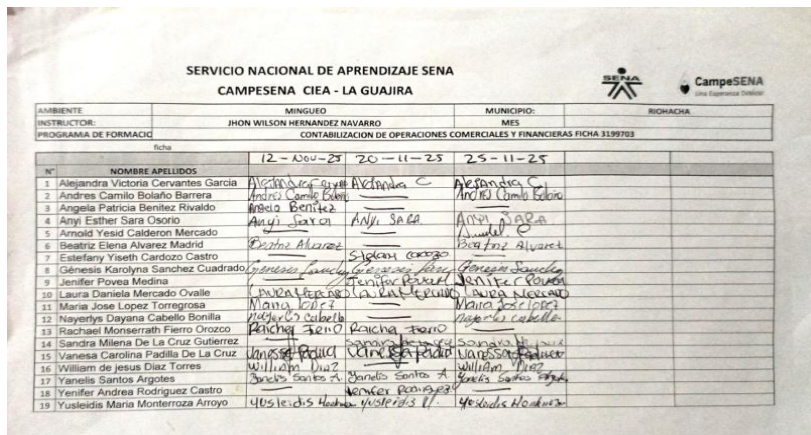 SERVICIO NACIONAL DE APRENDIZAJE SENA
CAMPESENA CIEA - LA GUAJIRA
SENA
CampeSENA
AMBIENTE MINGUEO MUNICIPIO: RIOHACHA
INSTRUCTOR: JHON WILSON HERNANDEZ NAVARRO MES
PROGRAMA DE FORMACIO CONTABILIZACION DE OPERACIONES COMERCIALES Y FINANCIERAS FICHA 3199703
ficha
12-NOV-25 20-11-25 25-11-25
N° NOMBRE APELLIDOS
1 Alejandra Victoria Cervantes Garcia Alejandra Alejandra C Alejandra C
2 Andres Camilo Bolaño Barrera Andres Camilo Bolaño — Andres Camilo Bolaño
3 Angela Patricia Benitez Rivaldo Angela Benitez — —
4 Anyi Esther Sara Osorio Anyi Sara Anyi SARA Anyi SARA
5 Arnold Yesid Calderon Mercado —
6 Beatriz Elena Alvarez Madrid Beatriz Alvarez — Beatriz Alvarez
7 Estefany Yiseth Cardozo Castro — Cardozo —
8 Génesis Karolyna Sanchez Cuadrado Génesis Sanchez Génesis Génesis Sanchez
9 Jenifer Povea Medina — Jenifer Povea Jenifer Povea
10 Laura Daniela Mercado Ovalle LAURA MERCADO LAURA MERCADO LAURA MERCADO
11 Maria Jose Lopez Torregrosa Maria Lopez — Maria Jose Lopez
12 Nayerlys Dayana Cabello Bonilla Nayerlis cabello — Nayerlis cabello
13 Rachael Monserrath Fierro Orozco Raicha Fierro Raicha Fierro —
14 Sandra Milena De La Cruz Gutierrez — Sandra Sandra
15 Vanesa Carolina Padilla De La Cruz Vanessa Padilla Vanessa Padilla Vanessa Padilla
16 William de jesus Diaz Torres William Diaz — William Diaz
17 Yanelis Santos Argotes Yanelis Santos A. Yanelis Santos A. Yanelis Santos
18 Yenifer Andrea Rodriguez Castro — Yenifer Rodriguez —
19 Yusleidis Maria Monterroza Arroyo Yusleidis Yusleidis M. Yusleidis